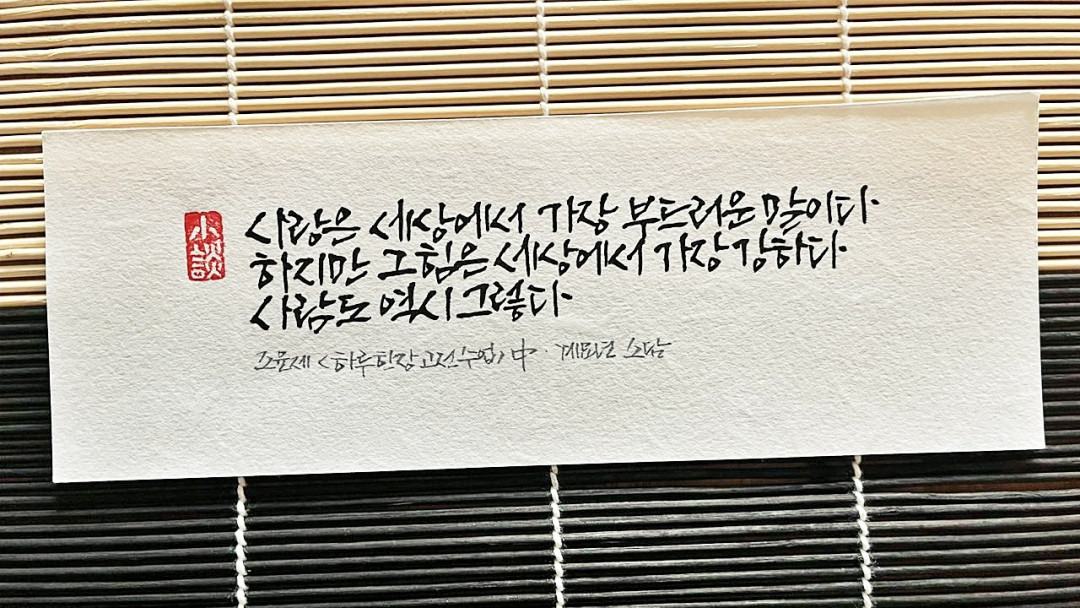 小談
사랑은 세상에서 가장 부드러운 말이다.
하지만 그 힘은 세상에서 가장 강하다.
사람도 역시 그렇다.
조윤제 <하루 한 장 고전 수업> 中 · 계묘년 소담